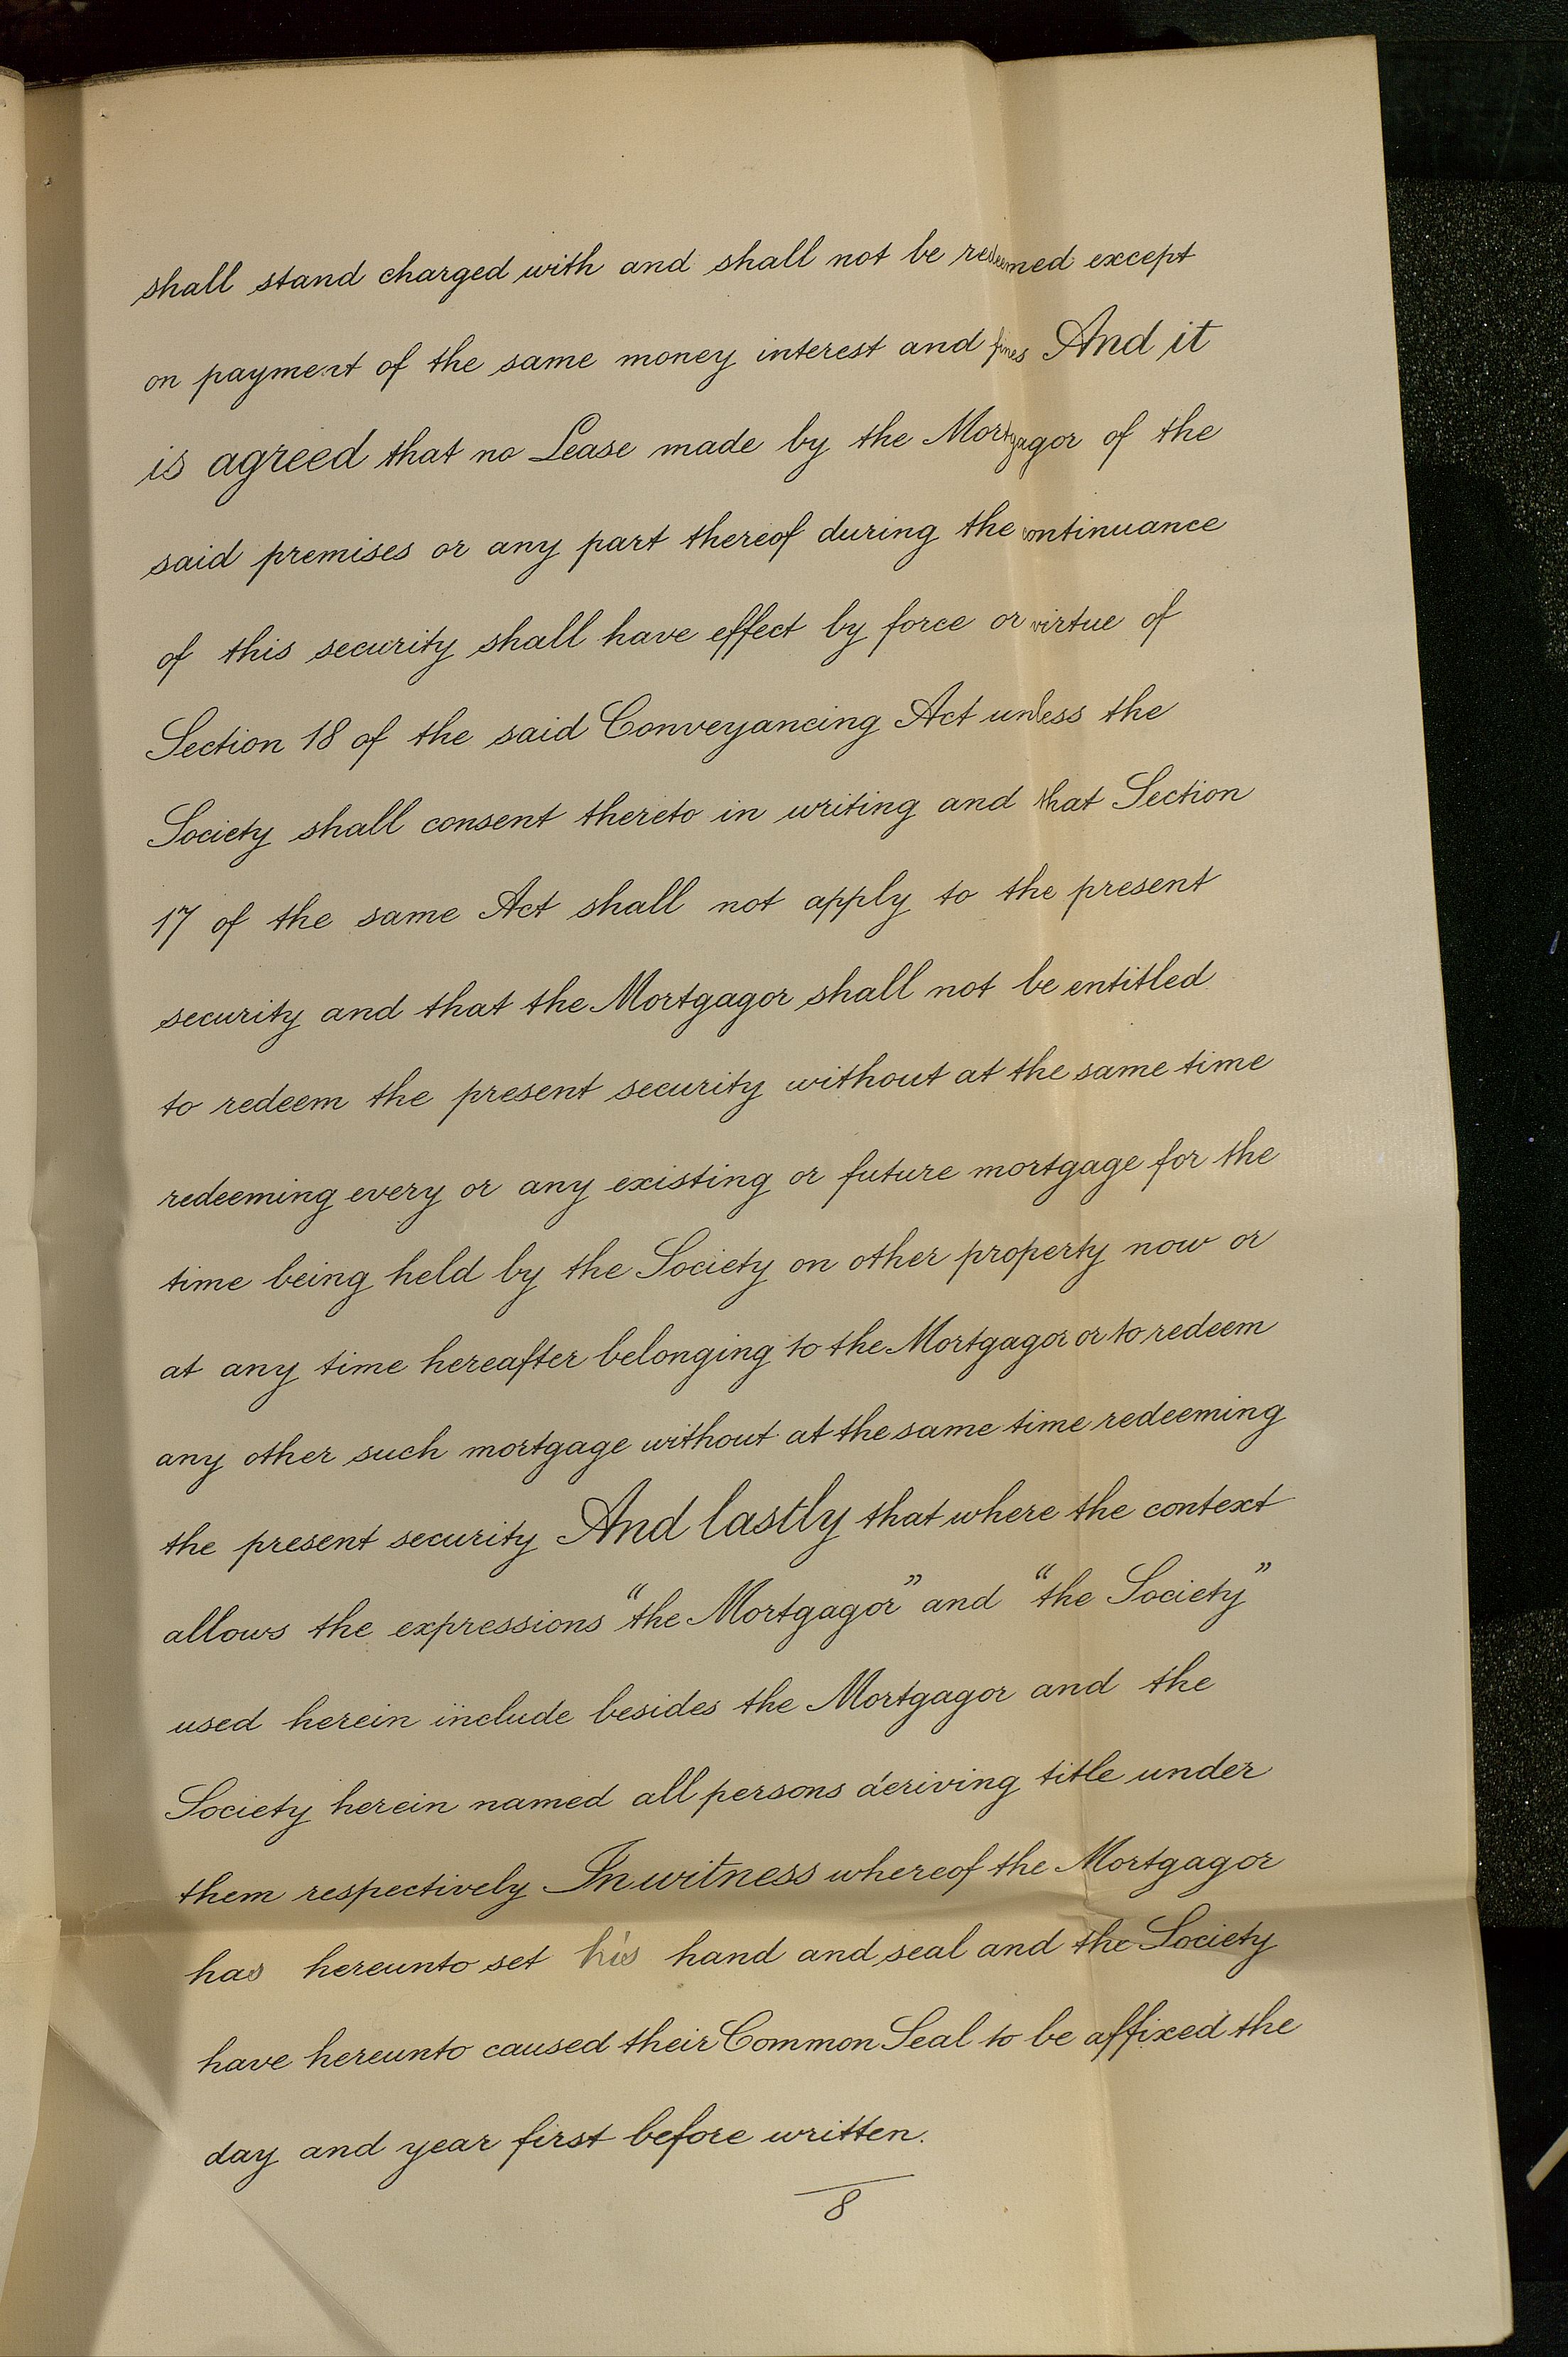 shall stand charged with and shall not be redeemed except
on payment of the same money interest and fines And it
is agreed that no Lease made by the Mortgagor of the
said premises or any part thereof during the continuance
of this security shall have effect by force or virtue of
Section 18 of the said Conveyancing Act unless the
Society shall consent thereto in writing and that Section
17 of the same Act shall not apply to the present
security and that the Mortgagor shall not be entitled
to redeem the present security without at the same time
redeeming every or any existing or future mortgage for the
time being held by the Society on other property now or
at any time hereafter belonging to the Mortgagor or to redeem
any other such mortgage without at the same time redeeming
the present security And lastly that where the context
allows the expressions "the Mortgagor" and "the Society"
used herein include besides the Mortgagor and the
Society herein named all persons deriving title under
them respectively In witness whereof the Mortgagor
has hereunto set his hand and seal and the Society
have hereunto caused their Common Seal to be affixed the
day and year first before written.
8